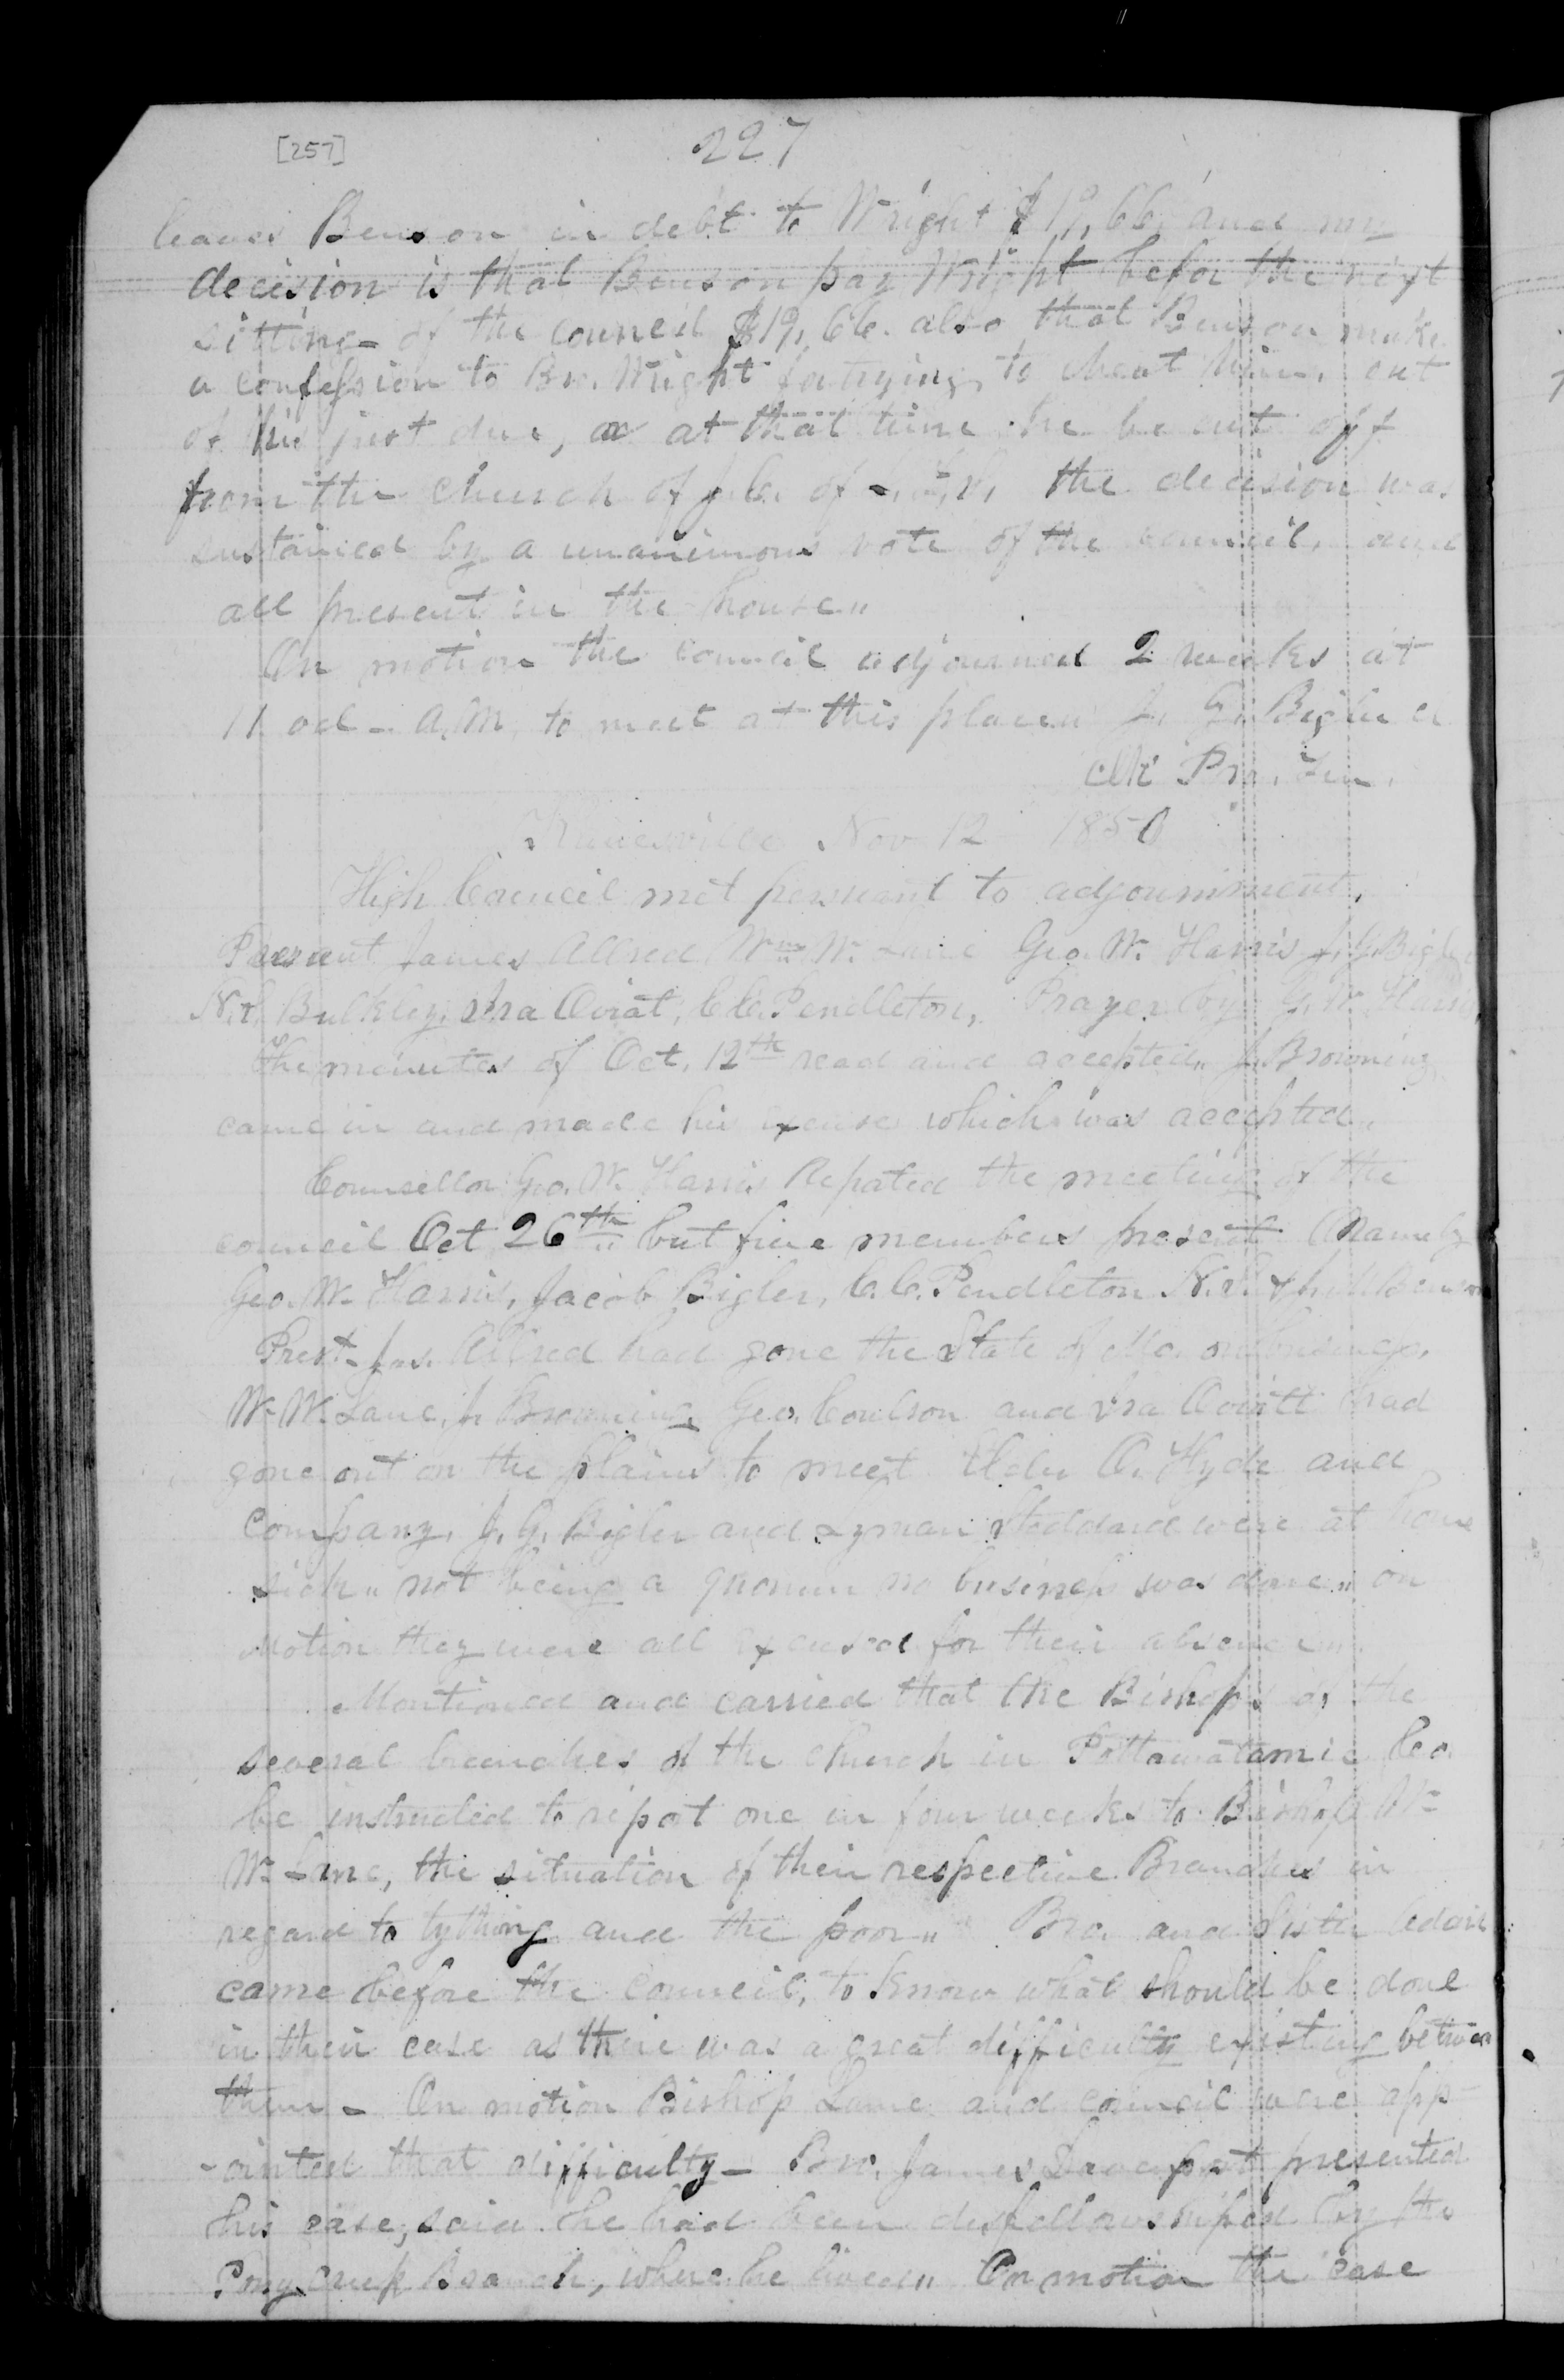 [257]
227
leaves Benson in debt to Wright $19,66, and my
decision is that Benson pay Wright befor the next
sitting - of the council $19,66. also that Benson make
a confession to Bro. Wright for trying to cheat him out
of his just due, or at that time he be cut off
from the church of J. C. of L. D. S, the decision was
sustained by a unanimous vote of the council, and
all present in the house"
On motion the council adjourned 2 weeks at
11 ocl - A.M. to meet at this place" J. G. Bigler
Clk Pro. Tem.
Kanesville Nov 12 1850
High Council met persuant to adjournment,
Present James Allred Wm W. Lane Geo. W. Harris J. G. Bigler
N. P. Bulkley, Ira Oviat, C.C. Pendleton, Prayer by G. W. Harris,
The minutes of Oct. 12th read and accepted" J. Browning
came in and made his excuse which was accepted"
Counsellor Geo. W. Harris Repoted the meeting of the
council Oct 26th but five members present (Namely
Geo. W. Harris, Jacob Bigler, C. C. Pendleton N. P. Benson
Prest - Jas. Allred had gone the State of Mo. on business,
W. W. Lane, J. Browning Geo. Coulson and Ira Oviatt had
gone out on the plains to meet Elder O. Hyde and
Company, J. G. Bigler and Lyman Stoddard were at home
sick" not being a quorum no business was done" on
Motion they were all excused for their absence"
Montioned and carried that the Bishops of the
several branches of the church in Pottawatamie Co.
be instructed to repot one in four weeks to Bishop Wm
W. Lane, the situation of their respective Branches in
regard to tything and the poor" Bro. and Sister Adair
came before the council, to know what should be done
in their case as their was a great difficulty existing between
them - On motion Bishop Lane and council were app-
-ointed that difficulty - Bro. James Davenpot presented
his case, said he had been disfellowshiped by the
Pony creek Branch, where he lived" On motion the case